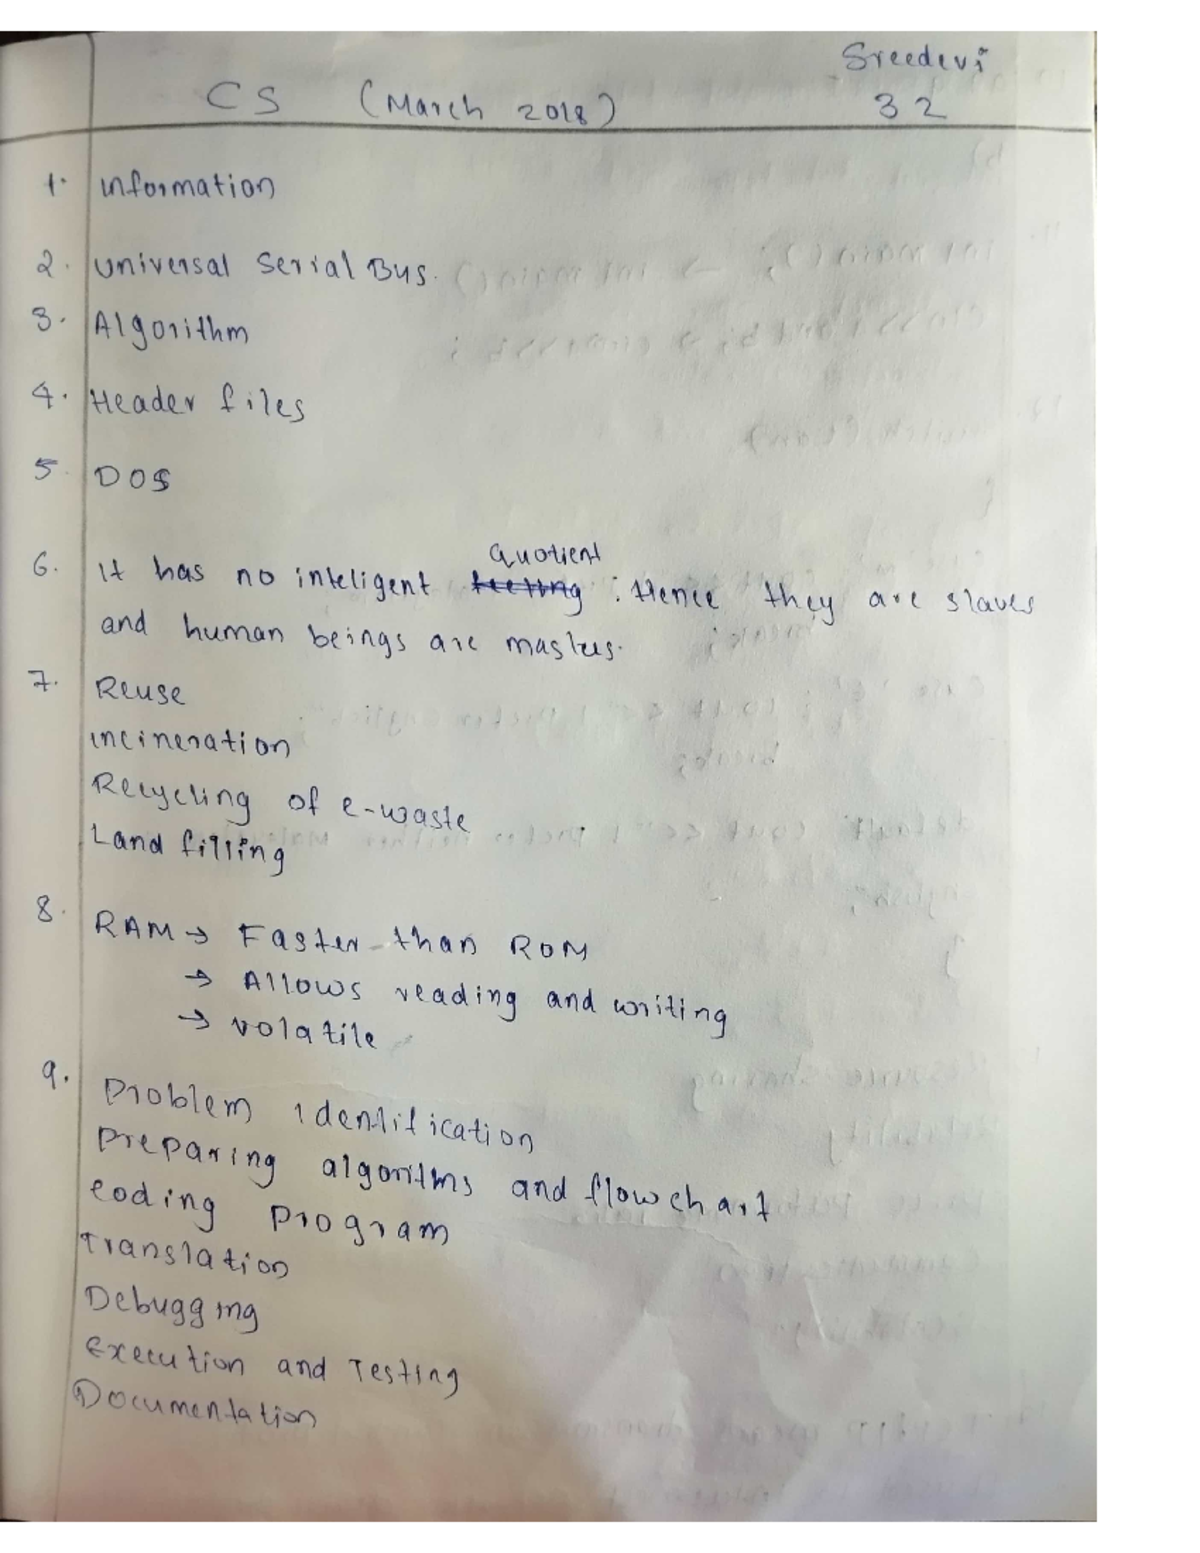 Sreedevi
CS (March 2018) 32
1. information
2. universal Serial Bus.
3. Algorithm
4. Header files
5. DOS
quotient
6. It has no inteligent : Hence they are slaves
and human beings are masters.
7. Reuse
incineration
Recycling of e-waste
Land filling
8. RAM → Faster than ROM
→ Allows reading and writing
→ volatile
9. Problem identification
preparing algorithms and flowchart
coding program
Translation
Debugging
Execution and Testing
Documentation